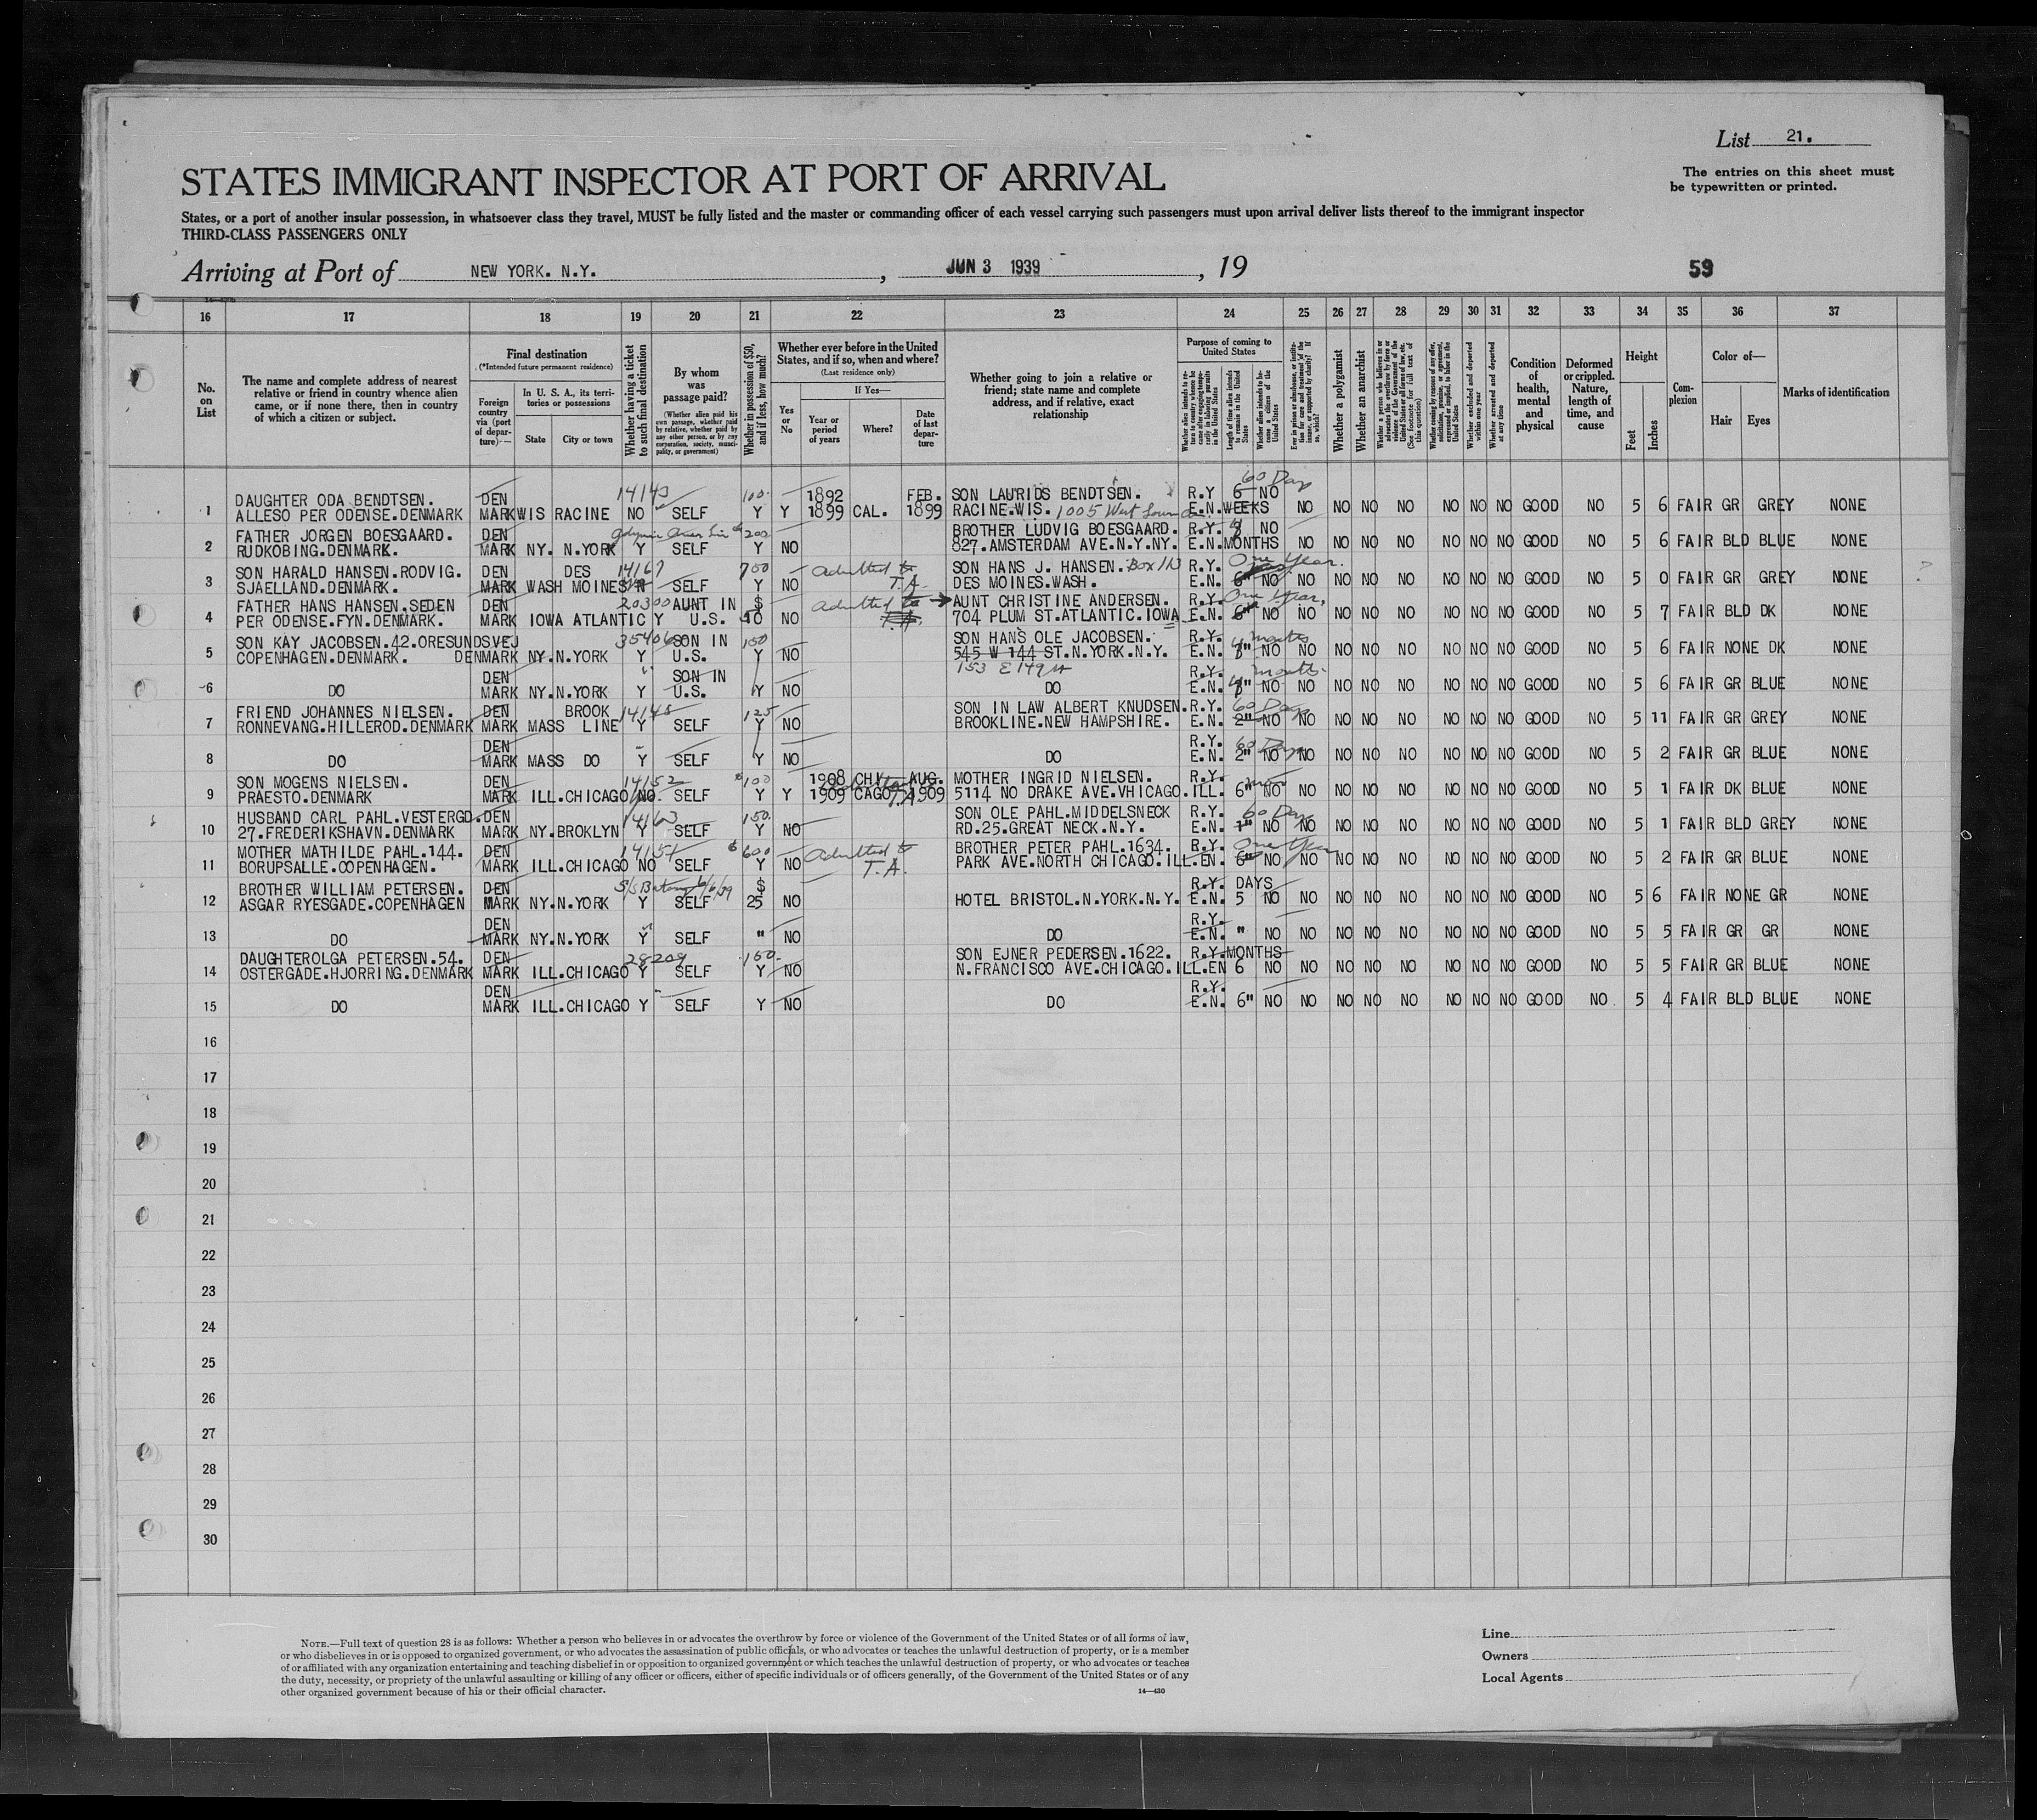 List 21.
The entries on this sheet must
be typewritten or printed.
STATES IMMIGRANT INSPECTOR AT PORT OF ARRIVAL
States, or a port of another insular possession, in whatsoever class they travel, MUST be fully listed and the master or commanding officer of each vessel carrying such passengers must upon arrival deliver lists thereof to the immigrant inspector
THIRD-CLASS PASSENGERS ONLY
Arriving at Port of NEW YORK. N.Y. , JUN 3 1939 , 19
59
16 17 18 19 20 21 22 23 24 25 26 27 28 29 30 31 32 33 34 35 36 37
No. on List
The name and complete address of nearest relative or friend in country whence alien came, or if none there, then in country of which a citizen or subject.
Final destination
(*Intended future permanent residence)
Foreign country via (port of departure)—
In U. S. A., its territories or possessions
State City or town
Whether having a ticket to such final destination
By whom was passage paid?
(Whether alien paid his own passage, whether paid by relative, whether paid by any other person, or by any corporation, society, municipality, or government)
Whether in possession of $50, and if less, how much?
Whether ever before in the United States, and if so, when and where?
(Last residence only)
Yes or No
If Yes—
Year or period of years
Where?
Date of last departure
Whether going to join a relative or friend; state name and complete address, and if relative, exact relationship
Purpose of coming to United States
Whether a polygamist
Whether an anarchist
Whether excluded and deported within one year
Whether arrested and deported at any time
Condition of health, mental and physical
Deformed or crippled. Nature, length of time, and cause
Height
Feet Inches
Complexion
Color of—
Hair Eyes
Marks of identification
14143 100. 60 Days
DAUGHTER ODA BENDTSEN. DEN 1892 FEB. SON LAURIDS BENDTSEN. R.Y 6 NO
1 ALLESO PER ODENSE.DENMARK MARK WIS RACINE NO SELF Y Y 1899 CAL. 1899 RACINE.WIS. 1005 West E.N.WEEKS NO NO NO NO NO NO NO GOOD NO 5 6 FAIR GR GREY NONE
FATHER JORGEN BOESGAARD. DEN 200 BROTHER LUDVIG BOESGAARD. R.Y. 8 NO
2 RUDKOBING.DENMARK. MARK NY. N.YORK Y SELF Y NO 827.AMSTERDAM AVE.N.Y.NY. E.N.MONTHS NO NO NO NO NO NO NO GOOD NO 5 6 FAIR BLD BLUE NONE
SON HARALD HANSEN.RODVIG. DEN DES 14167 700 Admitted to SON HANS J. HANSEN. R.Y. One Year.
3 SJAELLAND.DENMARK. MARK WASH MOINES SELF Y NO T.A. DES MOINES.WASH. E.N. 6" NO NO NO NO NO NO NO NO GOOD NO 5 0 FAIR GR GREY NONE ?
FATHER HANS HANSEN.SEDEN DEN 20300 AUNT IN $ Admitted to AUNT CHRISTINE ANDERSEN. R.Y. One Year.
4 PER ODENSE.FYN.DENMARK. MARK IOWA ATLANTIC Y U.S. 50 NO T.A. 704 PLUM ST.ATLANTIC.IOWA E.N. 6" NO NO NO NO NO NO NO NO GOOD NO 5 7 FAIR BLD DK NONE
SON KAY JACOBSEN.42.ORESUNDSVEJ 35406 SON IN 150 SON HANS OLE JACOBSEN. R.Y. 4 months
5 COPENHAGEN.DENMARK. DENMARK NY.N.YORK Y U.S. Y NO 545 W 144 ST.N.YORK.N.Y. E.N. 8" NO NO NO NO NO NO NO NO GOOD NO 5 6 FAIR NONE DK NONE
153 E 149 St
DEN SON IN R.Y. 4 months
6 DO MARK NY.N.YORK Y U.S. Y NO DO E.N. 8" NO NO NO NO NO NO NO NO GOOD NO 5 6 FAIR GR BLUE NONE
FRIEND JOHANNES NIELSEN. DEN BROOK 14145 125 SON IN LAW ALBERT KNUDSEN. R.Y. 60 Days
7 RONNEVANG.HILLEROD.DENMARK MARK MASS LINE Y SELF Y NO BROOKLINE.NEW HAMPSHIRE. E.N. 2" NO NO NO NO NO NO NO NO GOOD NO 5 11 FAIR GR GREY NONE
DEN R.Y. 60 Days
8 DO MARK MASS DO Y SELF Y NO DO E.N. 2" NO NO NO NO NO NO NO NO GOOD NO 5 2 FAIR GR BLUE NONE
SON MOGENS NIELSEN. DEN 14152 $100 1908 CHI AUG. MOTHER INGRID NIELSEN. R.Y.
9 PRAESTO.DENMARK MARK ILL.CHICAGO NO. SELF Y Y 1909 CAGO T.A. 1909 5114 NO DRAKE AVE.VHICAGO.ILL. 6" NO NO NO NO NO NO NO NO GOOD NO 5 1 FAIR DK BLUE NONE
HUSBAND CARL PAHL.VESTERGD. DEN 14163 150. SON OLE PAHL.MIDDELSNECK R.Y. 60 Days
10 27.FREDERIKSHAVN.DENMARK MARK NY.BROKLYN Y SELF Y NO RD.25.GREAT NECK.N.Y. E.N. 1" NO NO NO NO NO NO NO NO GOOD NO 5 1 FAIR BLD GREY NONE
MOTHER MATHILDE PAHL.144. DEN 14151 $600 Admitted to BROTHER PETER PAHL.1634. R.Y. One Year
11 BORUPSALLE.COPENHAGEN. MARK ILL.CHICAGO NO SELF Y NO T.A. PARK AVE.NORTH CHICAGO.ILL.EN. 6" NO NO NO NO NO NO NO NO GOOD NO 5 2 FAIR GR BLUE NONE
BROTHER WILLIAM PETERSEN. DEN S/S Batory 6/6/39 $ R.Y. DAYS
12 ASGAR RYESGADE.COPENHAGEN MARK NY.N.YORK Y SELF 25 NO HOTEL BRISTOL.N.YORK.N.Y. E.N. 5 NO NO NO NO NO NO NO NO GOOD NO 5 6 FAIR NONE GR NONE
DEN R.Y.
13 DO MARK NY.N.YORK Y SELF " NO DO E.N. " NO NO NO NO NO NO NO NO GOOD NO 5 5 FAIR GR GR NONE
DAUGHTEROLGA PETERSEN.54. DEN 28209 150. SON EJNER PEDERSEN.1622. R.Y.MONTHS
14 OSTERGADE.HJORRING.DENMARK MARK ILL.CHICAGO Y SELF Y NO N.FRANCISCO AVE.CHICAGO.ILL.EN 6 NO NO NO NO NO NO NO NO GOOD NO 5 5 FAIR GR BLUE NONE
DEN R.Y.
15 DO MARK ILL.CHICAGO Y SELF Y NO DO E.N. 6" NO NO NO NO NO NO NO NO GOOD NO. 5 4 FAIR BLD BLUE NONE
16
17
18
19
20
21
22
23
24
25
26
27
28
29
30
NOTE.—Full text of question 28 is as follows: Whether a person who believes in or advocates the overthrow by force or violence of the Government of the United States or of all forms of law,
or who disbelieves in or is opposed to organized government, or who advocates the assassination of public officials, or who advocates or teaches the unlawful destruction of property, or is a member
of or affiliated with any organization entertaining and teaching disbelief in or opposition to organized government or which teaches the unlawful destruction of property, or who advocates or teaches
the duty, necessity, or propriety of the unlawful assaulting or killing of any officer or officers, either of specific individuals or of officers generally, of the Government of the United States or of any
other organized government because of his or their official character.
14—430
Line
Owners
Local Agents